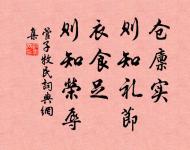 仓廪实
则知礼节
衣食足
则知荣辱
管子牧民詞典網
集